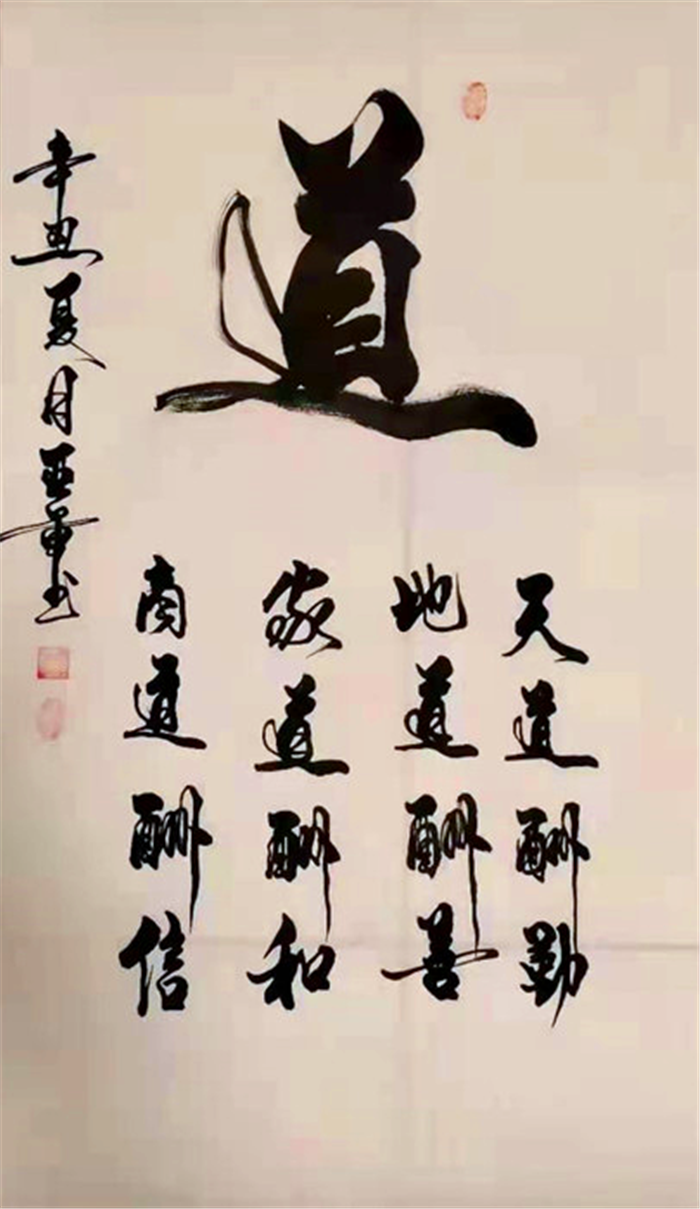 道
天道酬勤
地道酬善
家道酬和
商道酬信
辛丑夏月亚军书